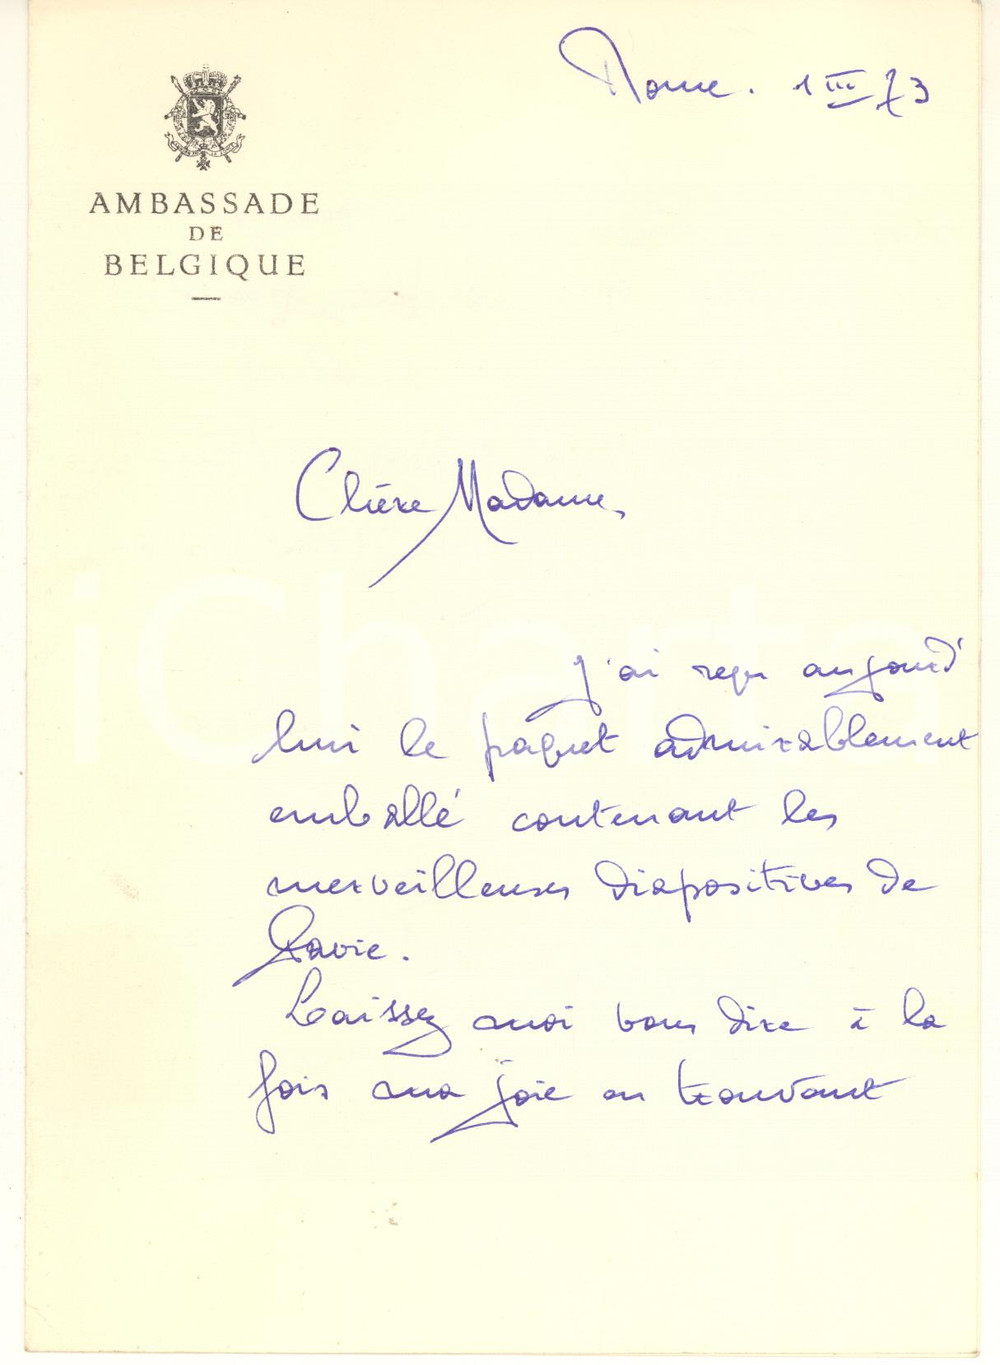 Rome. 1 III 73
AMBASSADE
DE
BELGIQUE
Chère Madame,
J'ai reçu aujourd'
hui le paquet admirablement
emballé contenant les
merveilleuses diapositives de
Pavie.
Laissez moi vous dire à la
fois ma joie en trouvant
iCharta